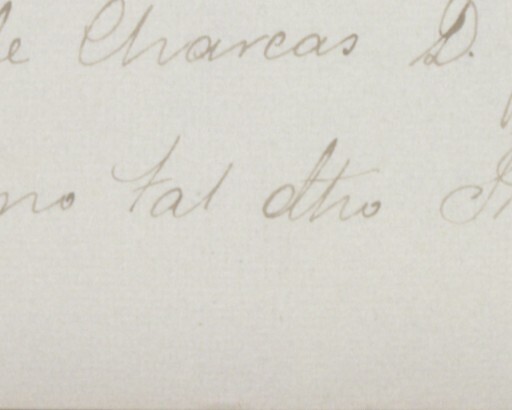 de Charcas D.
no tal dtho